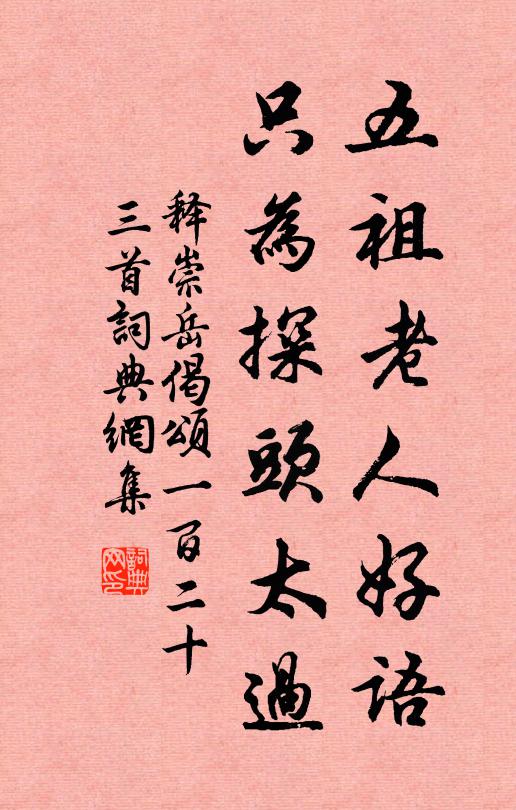 五祖老人好語
只為探頭太過
釋崇岳偈頌一百二十
三首詞典網集
詞典
网印